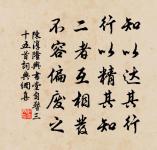 知以达其行
行以精其知
二者互相发
不容偏废之
陈淳隆兴书堂自警三
十五首词典网真